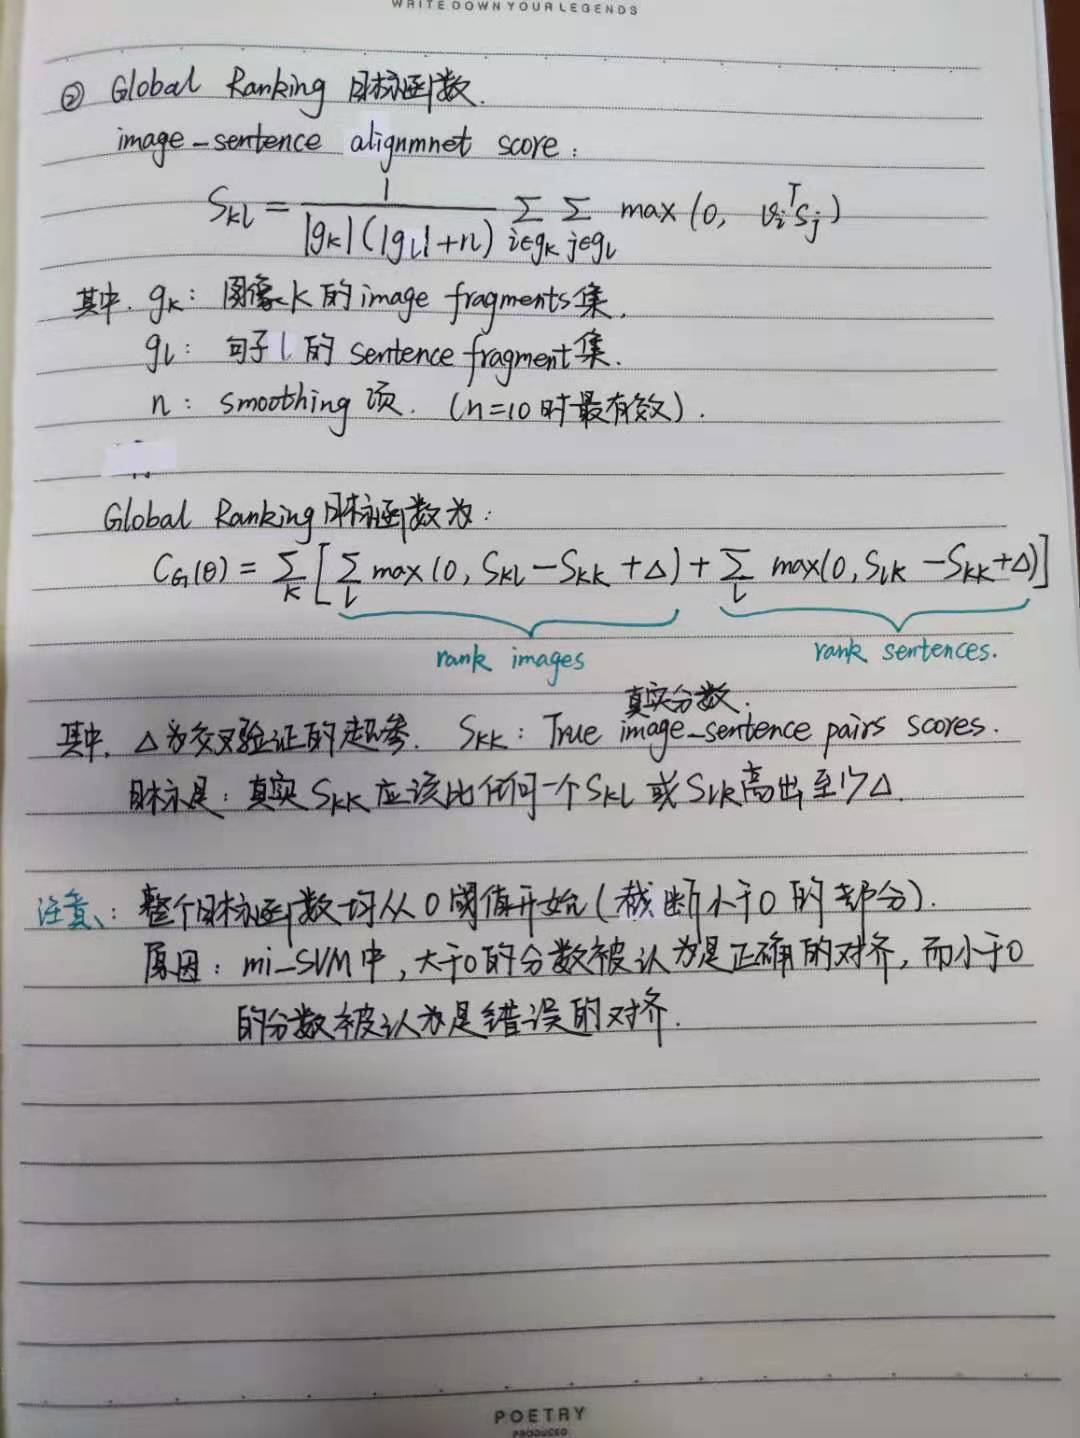 WRITE DOWN YOUR LEGENDS
② Global Ranking 目标函数.
image-sentence alignmnet score:
Skl = 1 / |gk|(|gl|+n) Σ i∈gk Σ j∈gl max(0, viᵀsj)
其中. gk: 图像k的image fragments集.
gl: 句子l的sentence fragment集.
n: smoothing项. (n=10时最有效).
Global Ranking 目标函数为:
CG(θ) = Σk [Σl max(0, Skl - Skk + Δ) + Σl max(0, Slk - Skk + Δ)]
rank images rank sentences.
真实分数.
其中, Δ为交叉验证的超参. Skk: True image-sentence pairs scores.
目标是: 真实Skk应该比任何一个Skl或Slk高出至少Δ.
注意: 整个目标函数均从0阈值开始(截断小于0的部分).
原因: mi-SVM中, 大于0的分数被认为是正确的对齐, 而小于0
的分数被认为是错误的对齐.
POETRY
PRODUCED